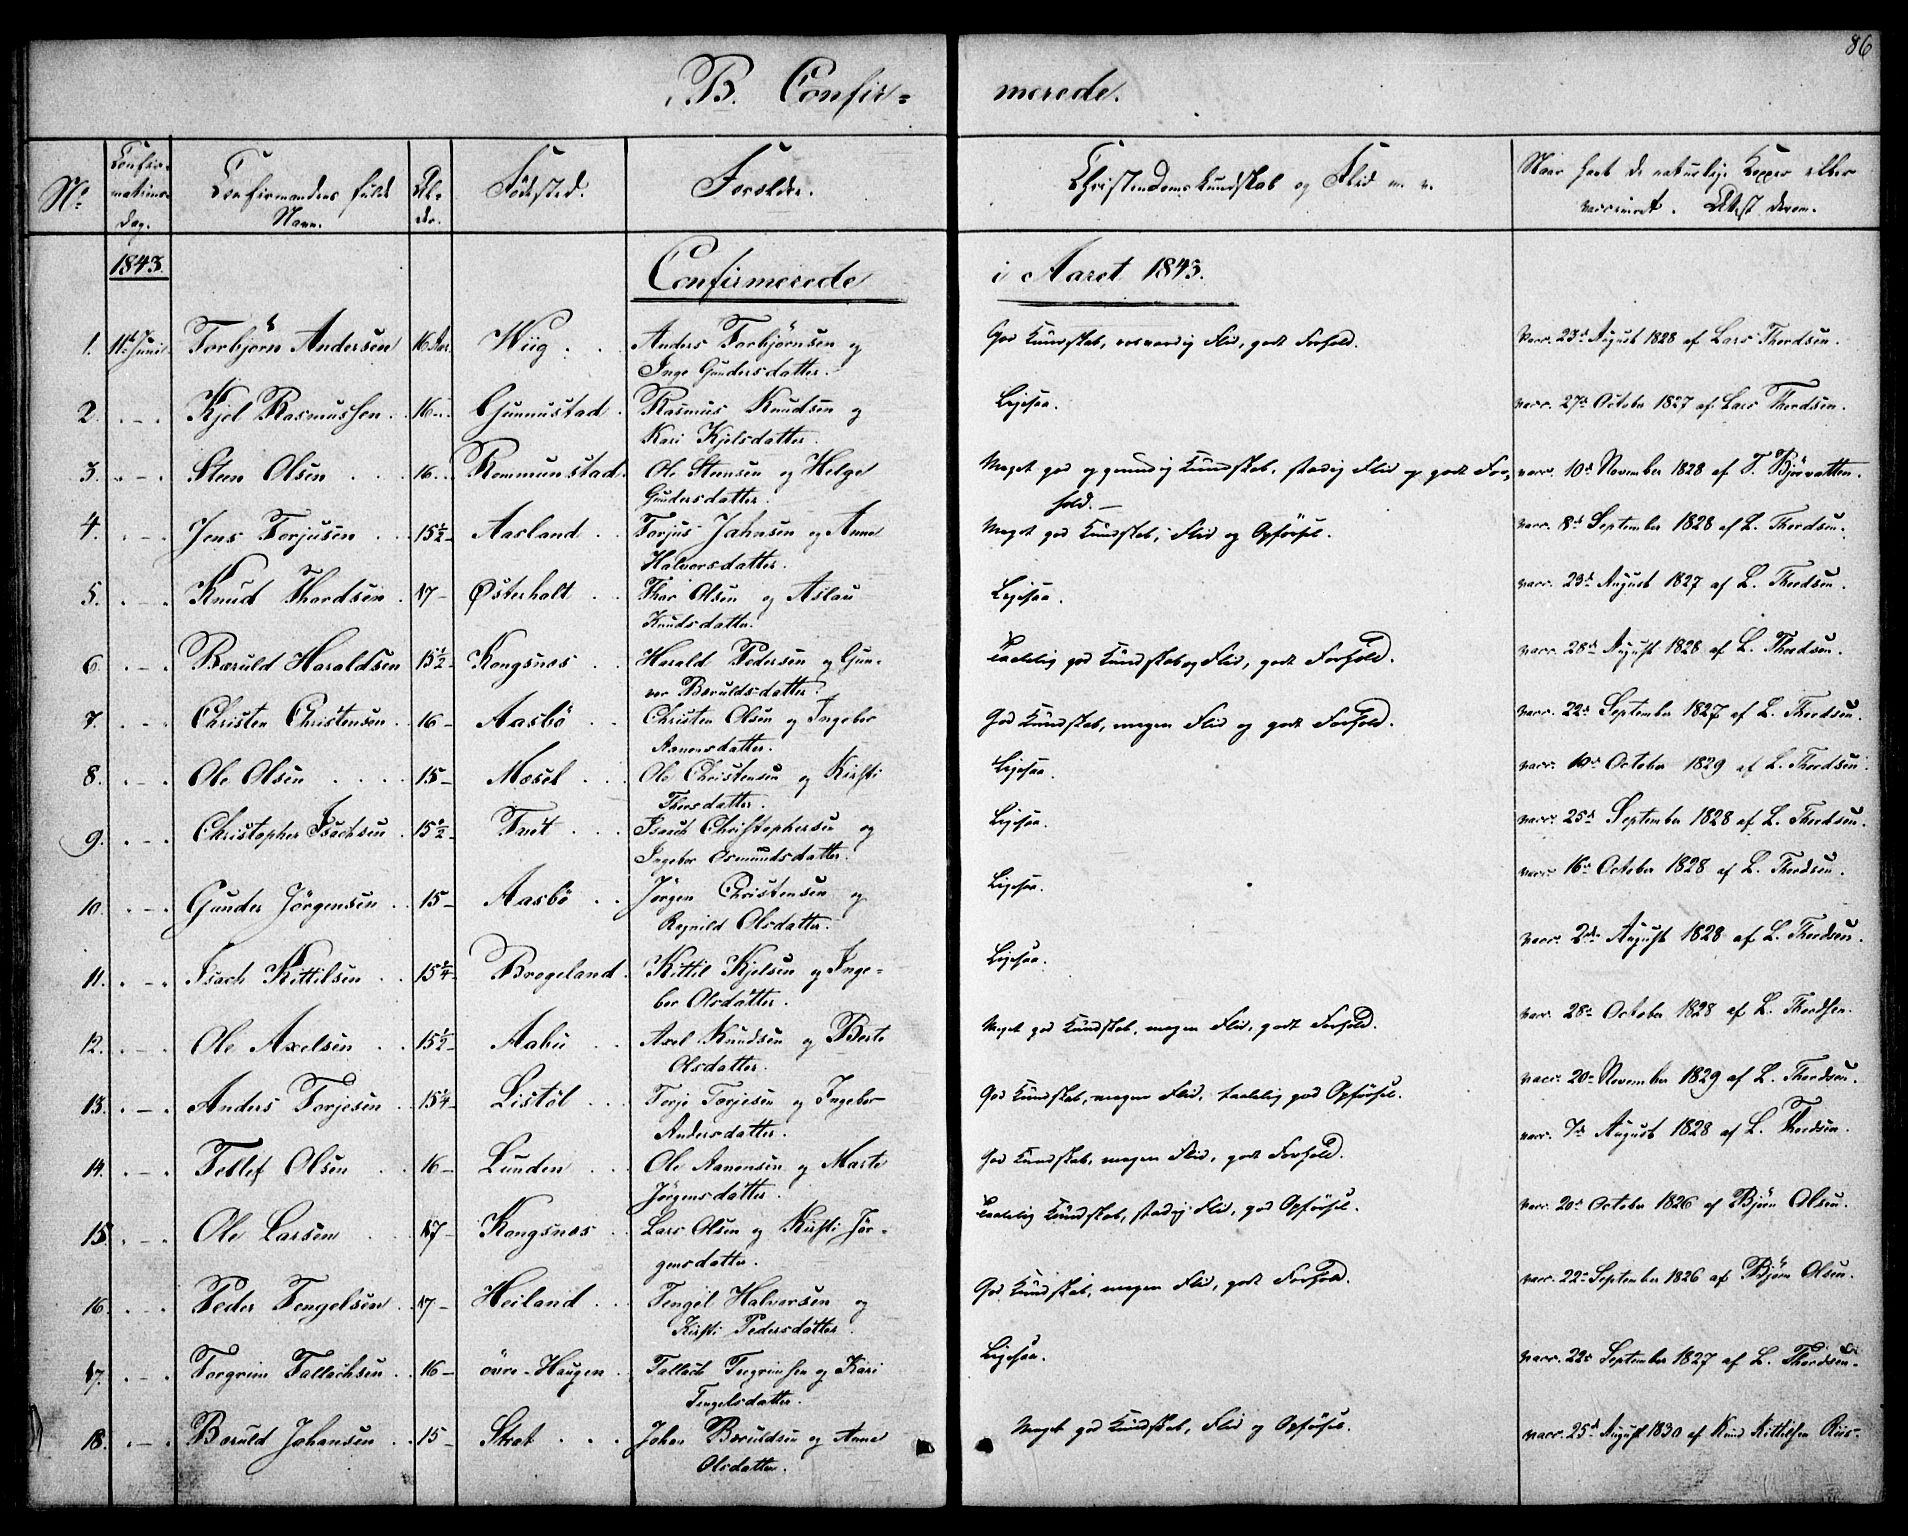 86
B. Confir=
merede.
No
Confir-
mations-
dag.
Confirmandens fulde
Navn.
Al-
der.
Fødested.
Forældre.
Christendoms Kundskab og Flid m. v.
Naar havt de naturlige Kopper eller
vaccineret. Attest derom.
1843.
Confirmerede
i Aaret 1843.
1. 11te Juni Torbjørn Andersen 16 Aar. Wiig Anders Torbjørnsen og God Kundskab, roesværdig Flid, godt Forhold. vacc. 23de August 1828 af Lars Thordsen.
Inge Gundersdatter.
2. - Kjel Rasmussen 16 Gunnustad Rasmus Knudsen og Ligesaa. vacc. 27de October 1827 af Lars Thordsen.
Kari Kjelsdatter.
3. - Steen Olsen 16 Rommunstad Ole Steensen og Helge Meget god og grundig Kundskab, stadig Flid og godt For- vacc. 10de November 1828 af T. Bjørvatten.
Gundersdatter. hold.
4. - Jens Torjusen 15½ Aasland Torjus Jahnsen og Anne Meget god Kundskab, Flid og Opførsel. vacc. 8de September 1828 af L. Thordsen.
Halvorsdatter.
5. - Knud Thordsen 17 Østerholt Thor Olsen og Aslau Ligesaa. vacc. 23de August 1827 af L. Thordsen.
Knudsdatter.
6 - Bæruld Haraldsen 15½ Kongsnes Harald Pedersen og Gun- Taalelig god Kundskab og Flid, godt Forhold. vacc. 28de August 1828 af L. Thordsen.
vor Bæruldsdatter.
7. - Christen Christensen 16 Aasbø Christen Olsen og Ingebor God Kundskab, megen Flid og godt Forhold. vacc. 22de September 1827 af L. Thordsen.
Aanensdatter.
8. - Ole Olsen 15 Mosel Ole Christensen og Kirsti Ligesaa. vacc. 10de October 1829 af L. Thordsen.
Thorsdatter.
9. - Christopher Isachsen 15½ Isach Christophersen og Ligesaa. vacc. 25de September 1828 af L. Thordsen.
Ingebor Osmundsdatter.
10. - Gunder Jörgensen 15 Aasbø Jörgen Christensen og Ligesaa. vacc. 16de October 1828 af L. Thordsen.
Ragnild Olsdatter.
11. - Isach Kittilsen 15¼ Brogeland Kittil Kjelsen og Inge- Ligesaa. vacc. 2den August 1828 af L. Thordsen.
bor Olsdatter.
12. - Ole Axelsen 15½ Aabu Axel Knudsen og Berte Meget god Kundskab, megen Flid, godt Forhold. vacc. 28de October 1828 af L. Thordsen.
Olsdatter.
13. - Anders Torjesen 15¼ Listøl Torje Torjesen og Ingebor God Kundskab, megen Flid, taalelig god Opførsel. vacc. 20de November 1829 af L. Thordsen.
Andersdatter.
14. - Tellef Olsen 16 Lunden Ole Aanensen og Marte God Kundskab, megen Flid, godt Forhold. vacc. 7de August 1828 af L. Thordsen.
Jörgensdatter.
15 - Ole Larsen 17 Kongsnes Lars Olsen og Kirsti Jör- Taalelig Kundskab, stadig Flid, god Opførsel. vacc. 20de October 1826 af Bjørn Olsen.
gensdatter.
16 - Peder Tengelsen 17 Heiland Tengel Halvorsen og God Kundskab, megen Flid, godt Forhold. vacc. 22de September 1826 af Bjørn Olsen.
Kirsti Pedersdatter.
17. - Torgrim Tallachsen 16 øvre-Haugen Tallach Torgrimsen og Kari Ligesaa. vacc. 22de September 1827 af L. Thordsen.
Tengelsdatter.
18. - Bæruld Johansen 15 Skat Johan Bæruldsen og Anne Meget god Kundskab, Flid og Opførsel. vacc. 25de August 1830 af Knud Kittilsen Riis.
Olsdatter.